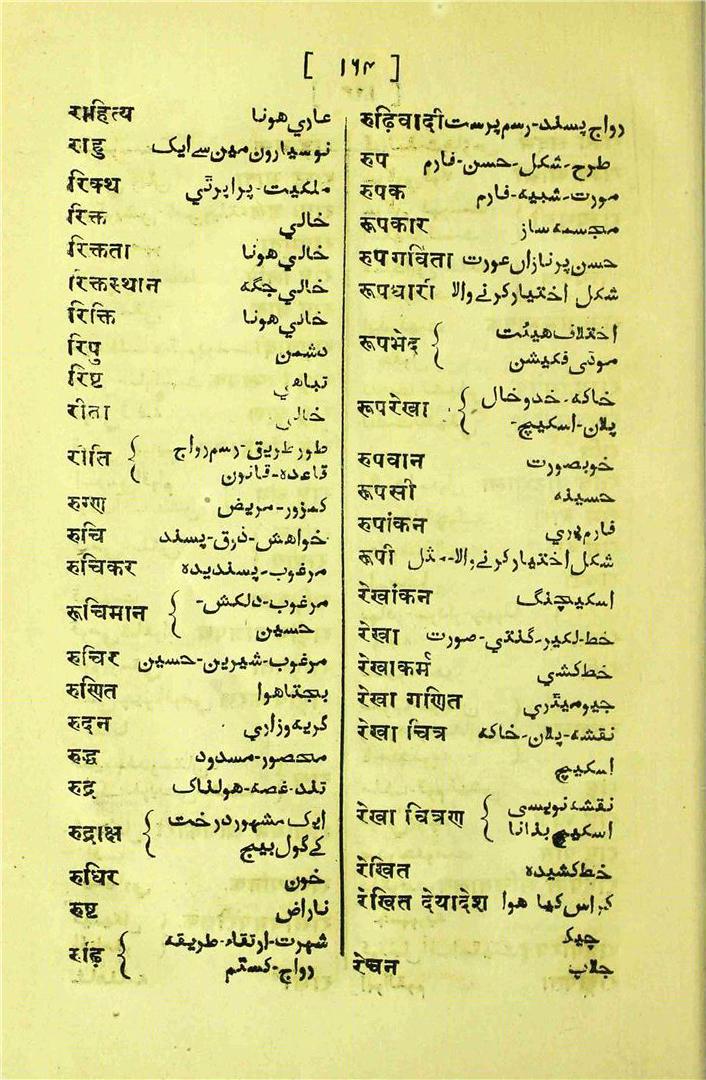 [ ۱۶۴ ]
राहित्य عاري هونا
राहु نوسيارون مين سے ايک
रिक्थ ملكيت-پراپرٹي
रिक्त خالي
रिक्तता خالي هونا
रिक्तस्थान خالي جگه
रिक्ति خالي هونا
रिपु دشمن
रिष्ट تباهي
रीता خالي
रीति { طور طريق-رسم رواج
قاعده-قانون
रुग्ण كمزور-مريض
रुचि خواهش-ذوق-پسند
रुचिकर مرغوب-پسنديده
रूचिमान { مرغوب-دلكش-
حسين
रुचिर مرغوب-شيرين-حسين
रुणित بجتا هوا
रुदन گريه و زاري
रुद्ध محصور-مسدود
रुद्र تند-غصه-هولناک
रुद्राक्ष { ايک مشهور درخت
کے گول بيج
रुधिर خون
रुष्ट ناراض
रूढ़ि { شهرت-ارتقاء-طريقه
رواج-كسٹم
रुढ़िवादी رواج پسند-رسم پرست
रुप طرح-شكل-حسن-فارم
रुपक صورت-شبيه-فارم
रूपकार مجسمه ساز
रुपगविता حسن پر نازاں عورت
रूपधारी شكل اختيار كرنے والا
रूपभेद { اختلاف هيئت
موڈي فكيشن
रूपरेखा { خاكه-خد و خال
پلان-اسكيچ-
रुपवान خوبصورت
रूपसी حسينه
रुपांकन فارم پري
रूपी شكل اختيار كرنے والا-مثل
रेखांकन اسكيچنگ
रेखा خط-لكير-گنتي-صورت
रेखाकर्म خط كشي
रेखा गणित جيوميٹري
रेखा चित्र نقشه-پلان-خاكه
اسكيچ
रेखा चित्रण { نقشه نويسي
اسكيچ بنانا
रेखित خط كشيده
रेखित देयादेश كراس كيا هوا
چيک
रेचन جلاب